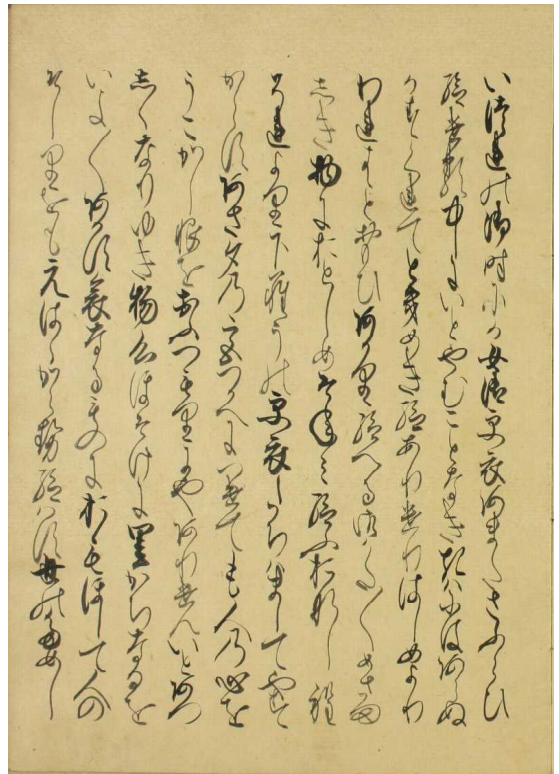 いつれの御時にか女御更衣あまたさふらひ
給ける中にいとやむことなきゝはにはあらぬ
かすくれてときめき給ありけりはしめより
われはとおもひあかり給へる御かた／＼めさま
しき物におとしめそねみ給ふおなし程
それより下らうの更衣たちはましてやす
からすあさ夕の宮つかへにつけても人の心を
うこかし恨をおふつもりにやありけんいとあつ
しくなりゆき物心ほそけに里かちなるを
いよ／＼あかす哀なるものにおもほして人の
そしりをもえはゝからせ給はす世のためし